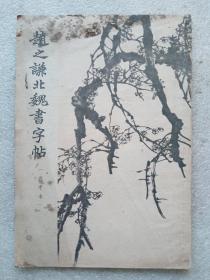 趙之謙北魏書字帖